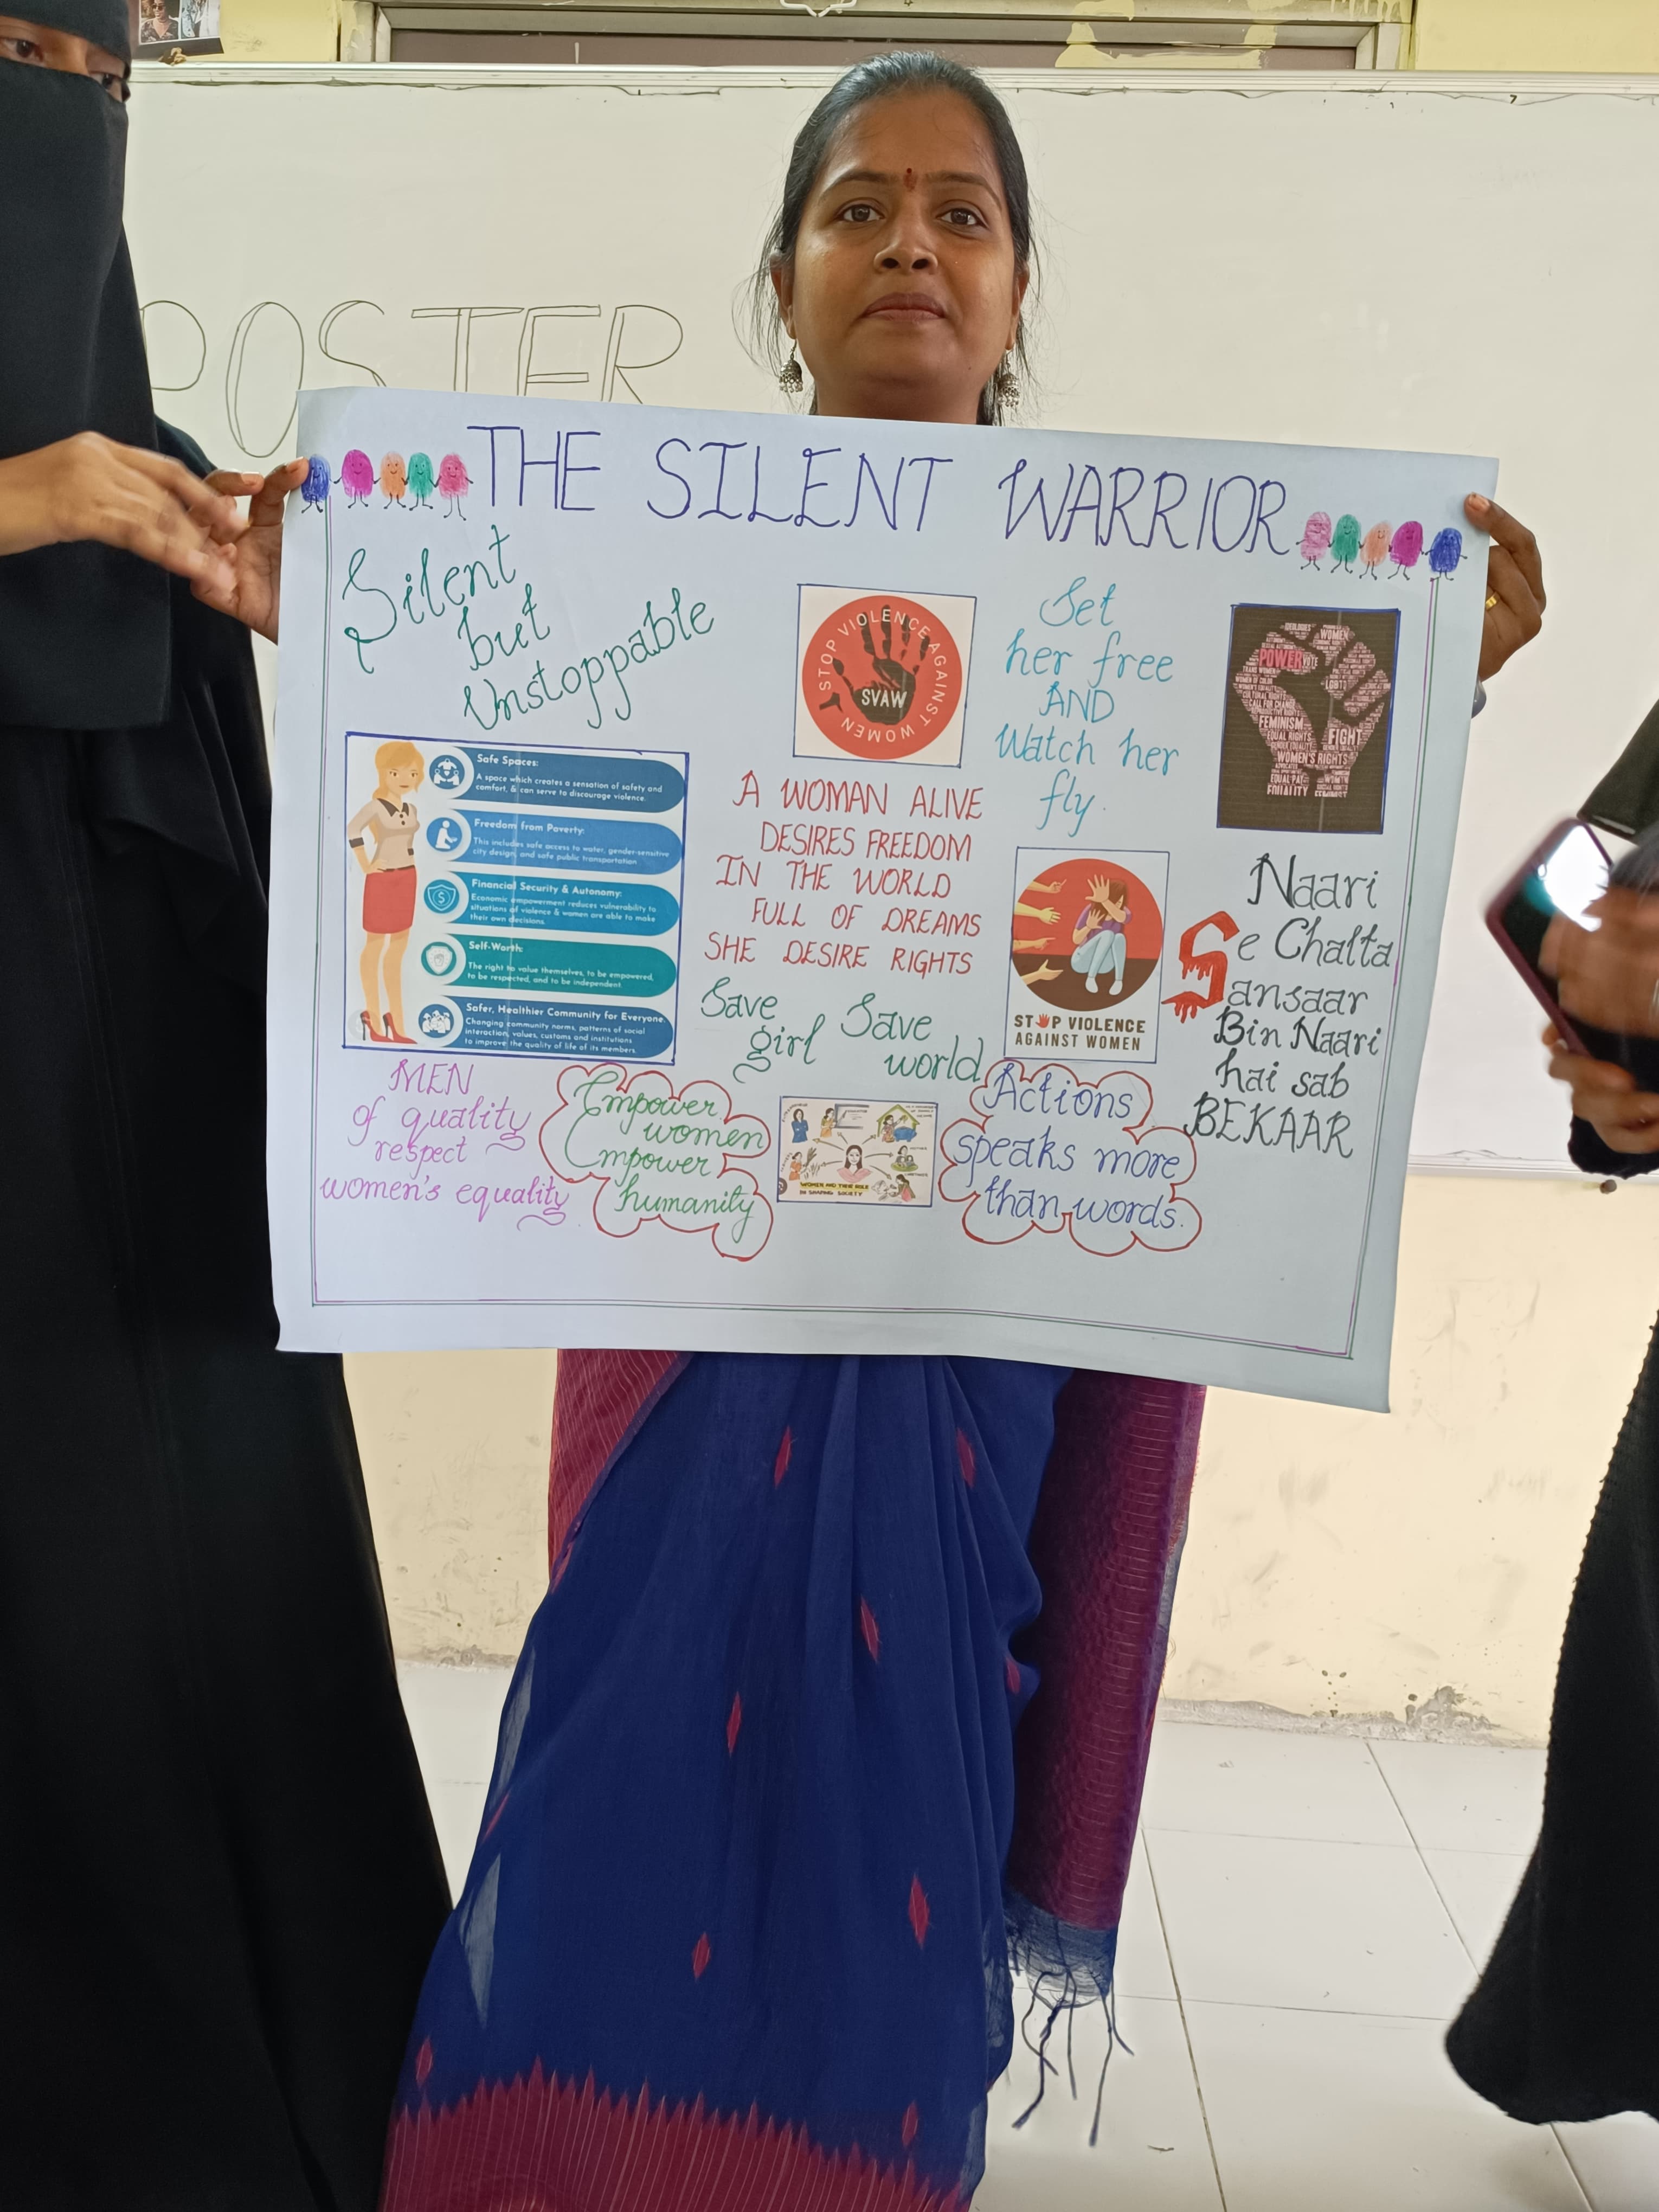 POSTER
THE SILENT WARRIOR
Silent
but
Unstoppable
STOP VIOLENCE AGAINST WOMEN
SVAW
Set
her free
AND
Watch her
fly.
WOMEN
POWER
VOTE
LGBT
FEMINISM
FIGHT
EQUAL RIGHTS
WOMEN'S RIGHTS
EQUAL PAY
EQUALITY
Safe Spaces:
A space which creates a sensation of safety and
comfort, & can serve to discourage violence.
Freedom from Poverty:
This includes safe access to water, gender-sensitive
city design, and safe public transportation
Financial Security & Autonomy:
Economic empowerment reduces vulnerability to
situations of violence & women are able to make
their own decisions.
Self-Worth:
The right to value themselves, to be empowered,
to be respected, and to be independent
Safer, Healthier Community for Everyone
Changing community norms, patterns of social
interaction, values, customs and institutions
to improve the quality of life of its members.
A WOMAN ALIVE
DESIRES FREEDOM
IN THE WORLD
FULL OF DREAMS
SHE DESIRE RIGHTS
Save
girl Save
world
STOP VIOLENCE
AGAINST WOMEN
Naari
Se Chalta
Sansaar
Bin Naari
hai sab
BEKAAR
MEN
of quality
respect
women's equality
Empower
women
Empower
humanity
WOMEN AND THEIR ROLE
IN SHAPING SOCIETY
Actions
speaks more
than words.